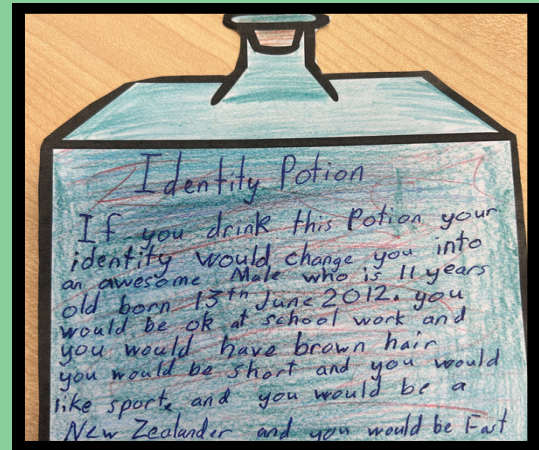 Identity Potion
If you drink this Potion your
identity would change you into
an awesome Male who is 11 years
old born 13th June 2012. you
would be ok at school work and
you would have brown hair
you would be short and you would
like sport, and you would be a
New Zealander and you would be Fast